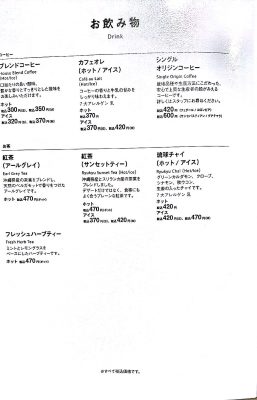 お飲み物
Drink
コーヒー
ブレンドコーヒー
(Hot/Ice)
House Blend Coffee
(Hot/Ice)
ホット
税込300円(R) 税込350円(M)
アイス
税込320円(R) 税込370円(M)
カフェオレ
(ホット / アイス)
Café au Lait
(Hot/Ice)
コーヒーの香りと牛乳の甘みを
しっかり味わえます。
7大アレルゲン 乳
ホット
税込370円
アイス
税込370円(R) 税込420円(M)
シングル
オリジンコーヒー
Single Origin Coffee
コーヒーです。
詳しくはスタッフにお尋ねください。
税込420円
税込600円
お茶
紅茶
(アールグレイ)
Earl Grey Tea
沖縄県産の茶葉をブレンドし、
天然のベルガモットで香りをつけた
アールグレイです。
ホット 税込470円(ポット)
紅茶
(サンセットティー)
Ryukyu Sunset Tea (Hot/Ice)
沖縄県産とスリランカ産の茶葉を
ブレンドしました。
デザートだけではなく、食事にも
よく合うプレーンな紅茶です。
ホット
税込470円(ポット)
アイス
税込370円(R) 税込420円(M)
琉球チャイ
(ホット / アイス)
Ryukyu Chai (Hot/Ice)
グリーンカルダモン、クローブ、
シナモン、島ウコン、
生姜の入ったチャイです。
7大アレルゲン 乳
ホット
税込420円
アイス
税込420円(R) 税込470円(M)
フレッシュハーブティー
Fresh Herb Tea
ミントとレモングラスを
ベースにしたハーブティーです。
ホット 税込470円(ポット)
※すべて税込価格です。